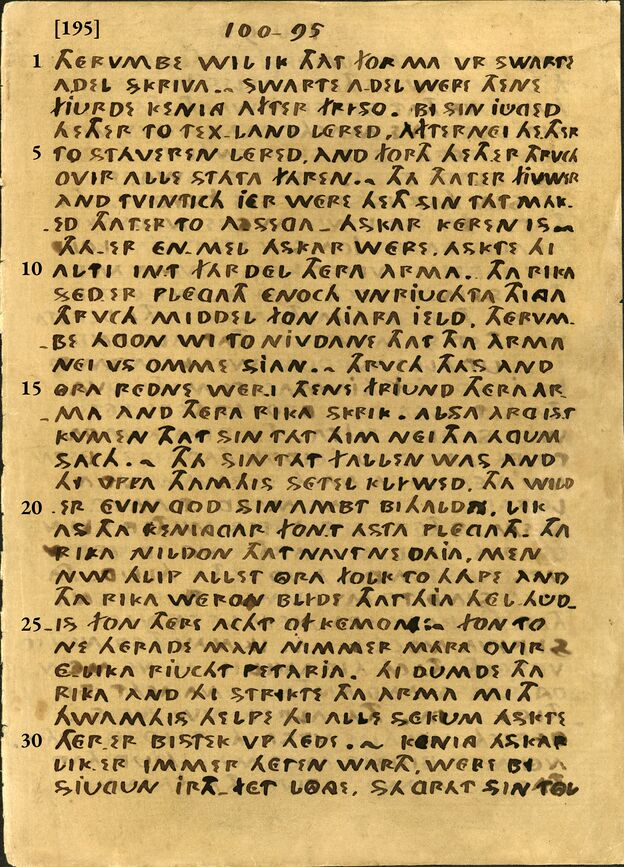 [195]
100-95
1 THERVMBE WIL IK THAT FORMA VR SWARTE
ADEL SKRIVA.~ SWARTE ADEL WERE THENE
FIURDE KENING AFTER FRISO. BI SIN IUGED
HETHER TO TEX-LAND LERED, AFTERNEI HETHER
5 TO STAVEREN LERED, AND FORTH HETHER THRUCH
OVIR ALLE STATA FAREN.~ THA THATER FIUWER
AND TVINTICH IER WERE HETH SIN TAT MAK-
ED THATER TO ASEGA-ASKAR KEREN IS~
THA-ER EN-MEL ASKAR WERE, ASKTE HI
10 ALTI INT FARDEL THERA ARMA. THA RIKA
SEDER PLEGATH ENOCH VNRIUCHTA THINGA
THRUCH MIDDEL FON HIARA IELD, THERVM-
BE HAGON WI TO NIVDANE THAT THA ARMA
NEI VS OMME SIAN.~ THRUCH THAS AND
15 ORA REDNE WERI THENE FRIUND THERA AR-
MA AND THERA RIKA SKRIK. ALSA ARG IST
KVMEN THAT SIN TAT HIM NEI THA AGUM
SACH.~ THA SIN TAT FALLEN WAS AND
HI OPPA THAMHIS SETEL KLYWED, THA WILD
20 ER EVIN GOD SIN AMBT BIHALDA, LIK
AS THA KENINGAR FONT ASTA PLEGATH. THA
RIKA NILDON THAT NAVT NE DAIA, MEN
NW HLIP ALLET ORA FOLK TO HAPE AND
THA RIKA WERON BLYDE THAT HIA HEL HUD-
25 IS FON THERE ACHT OFKEMON~ FON TO
NE HERADE MAN NIMMER MARA OVIR
E-LIKA RIUCHT PETARIA. HI DUMDE THA
RIKA AND HI STRIKTE THA ARMA MITH
HWAMHIS HELPE HI ALLE SEKUM ASKTE
30 THER-ER BISTEK VP HEDE.~ KENING ASKAR
LIK-ER IMMER HETEN WARTH, WERE BI
SIUGUN IRTH-FET LONGE, SA GRAT SIN TOL